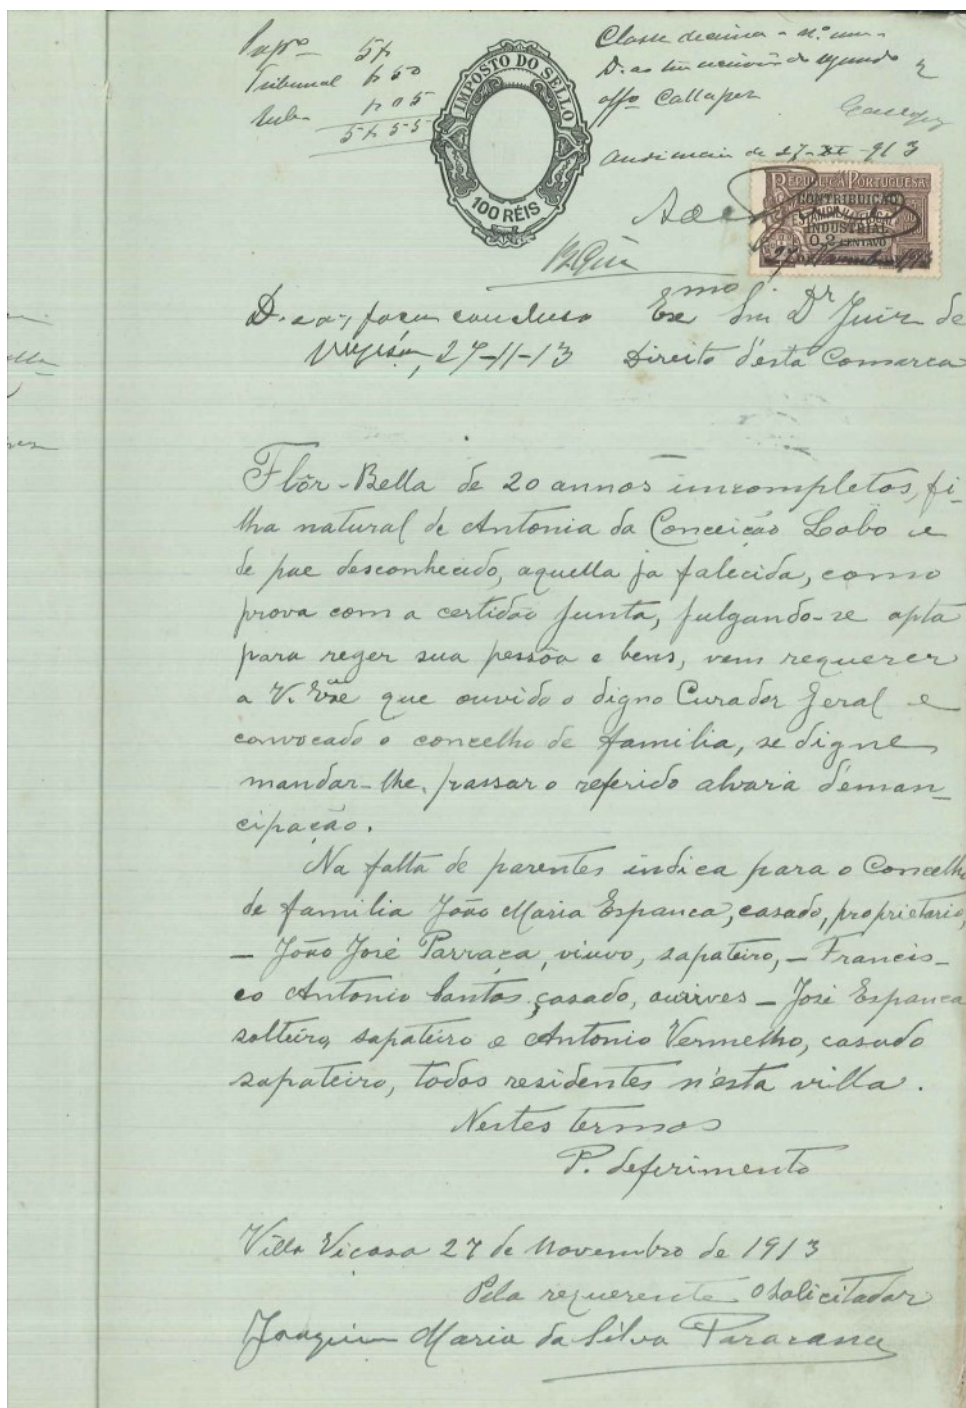 Papel 5$
Tribunal $50
$05
5$55
IMPOSTO DO SELLO
100 RÉIS
Classe decima - n.º um -
D. ao escrivão do segundo
offº Callapez
de 27-XI-913
REPUBLICA PORTUGUESA
CONTRIBUIÇÃO
INDUSTRIAL
0,2 CENTAVO
27 Novembro 1913
D. e a., faça concluso
Viçosa, 27-11-13
Exmo Snr Dr Juiz de
Direito d'esta Comarca
Flôr-Bella de 20 annos incompletos, fi-
lha natural de Antonia da Conceição Lobo e
de pae desconhecido, aquella ja falecida, como
prova com a certidão junta, julgando-se apta
para reger sua pessôa e bens, vem requerer
a V. Exª que ouvido o digno Curador Geral e
convocado o concelho de familia, se digne
mandar-lhe passar o referido alvará d'eman-
cipação.
Na falta de parentes indica para o Concelho
de familia João Maria Espanca, casado, proprietario,
- João José Parraça, viuvo, sapateiro, - Francis-
co Antonio Santos, casado, ourives - José Espanca
solteiro, sapateiro e Antonio Vermelho, casado
sapateiro, todos residentes n'esta villa.
Nestes termos
P. deferimento
Villa Viçosa 27 de Novembro de 1913
Pela requerente o solicitador
Joaquim Maria da Silva